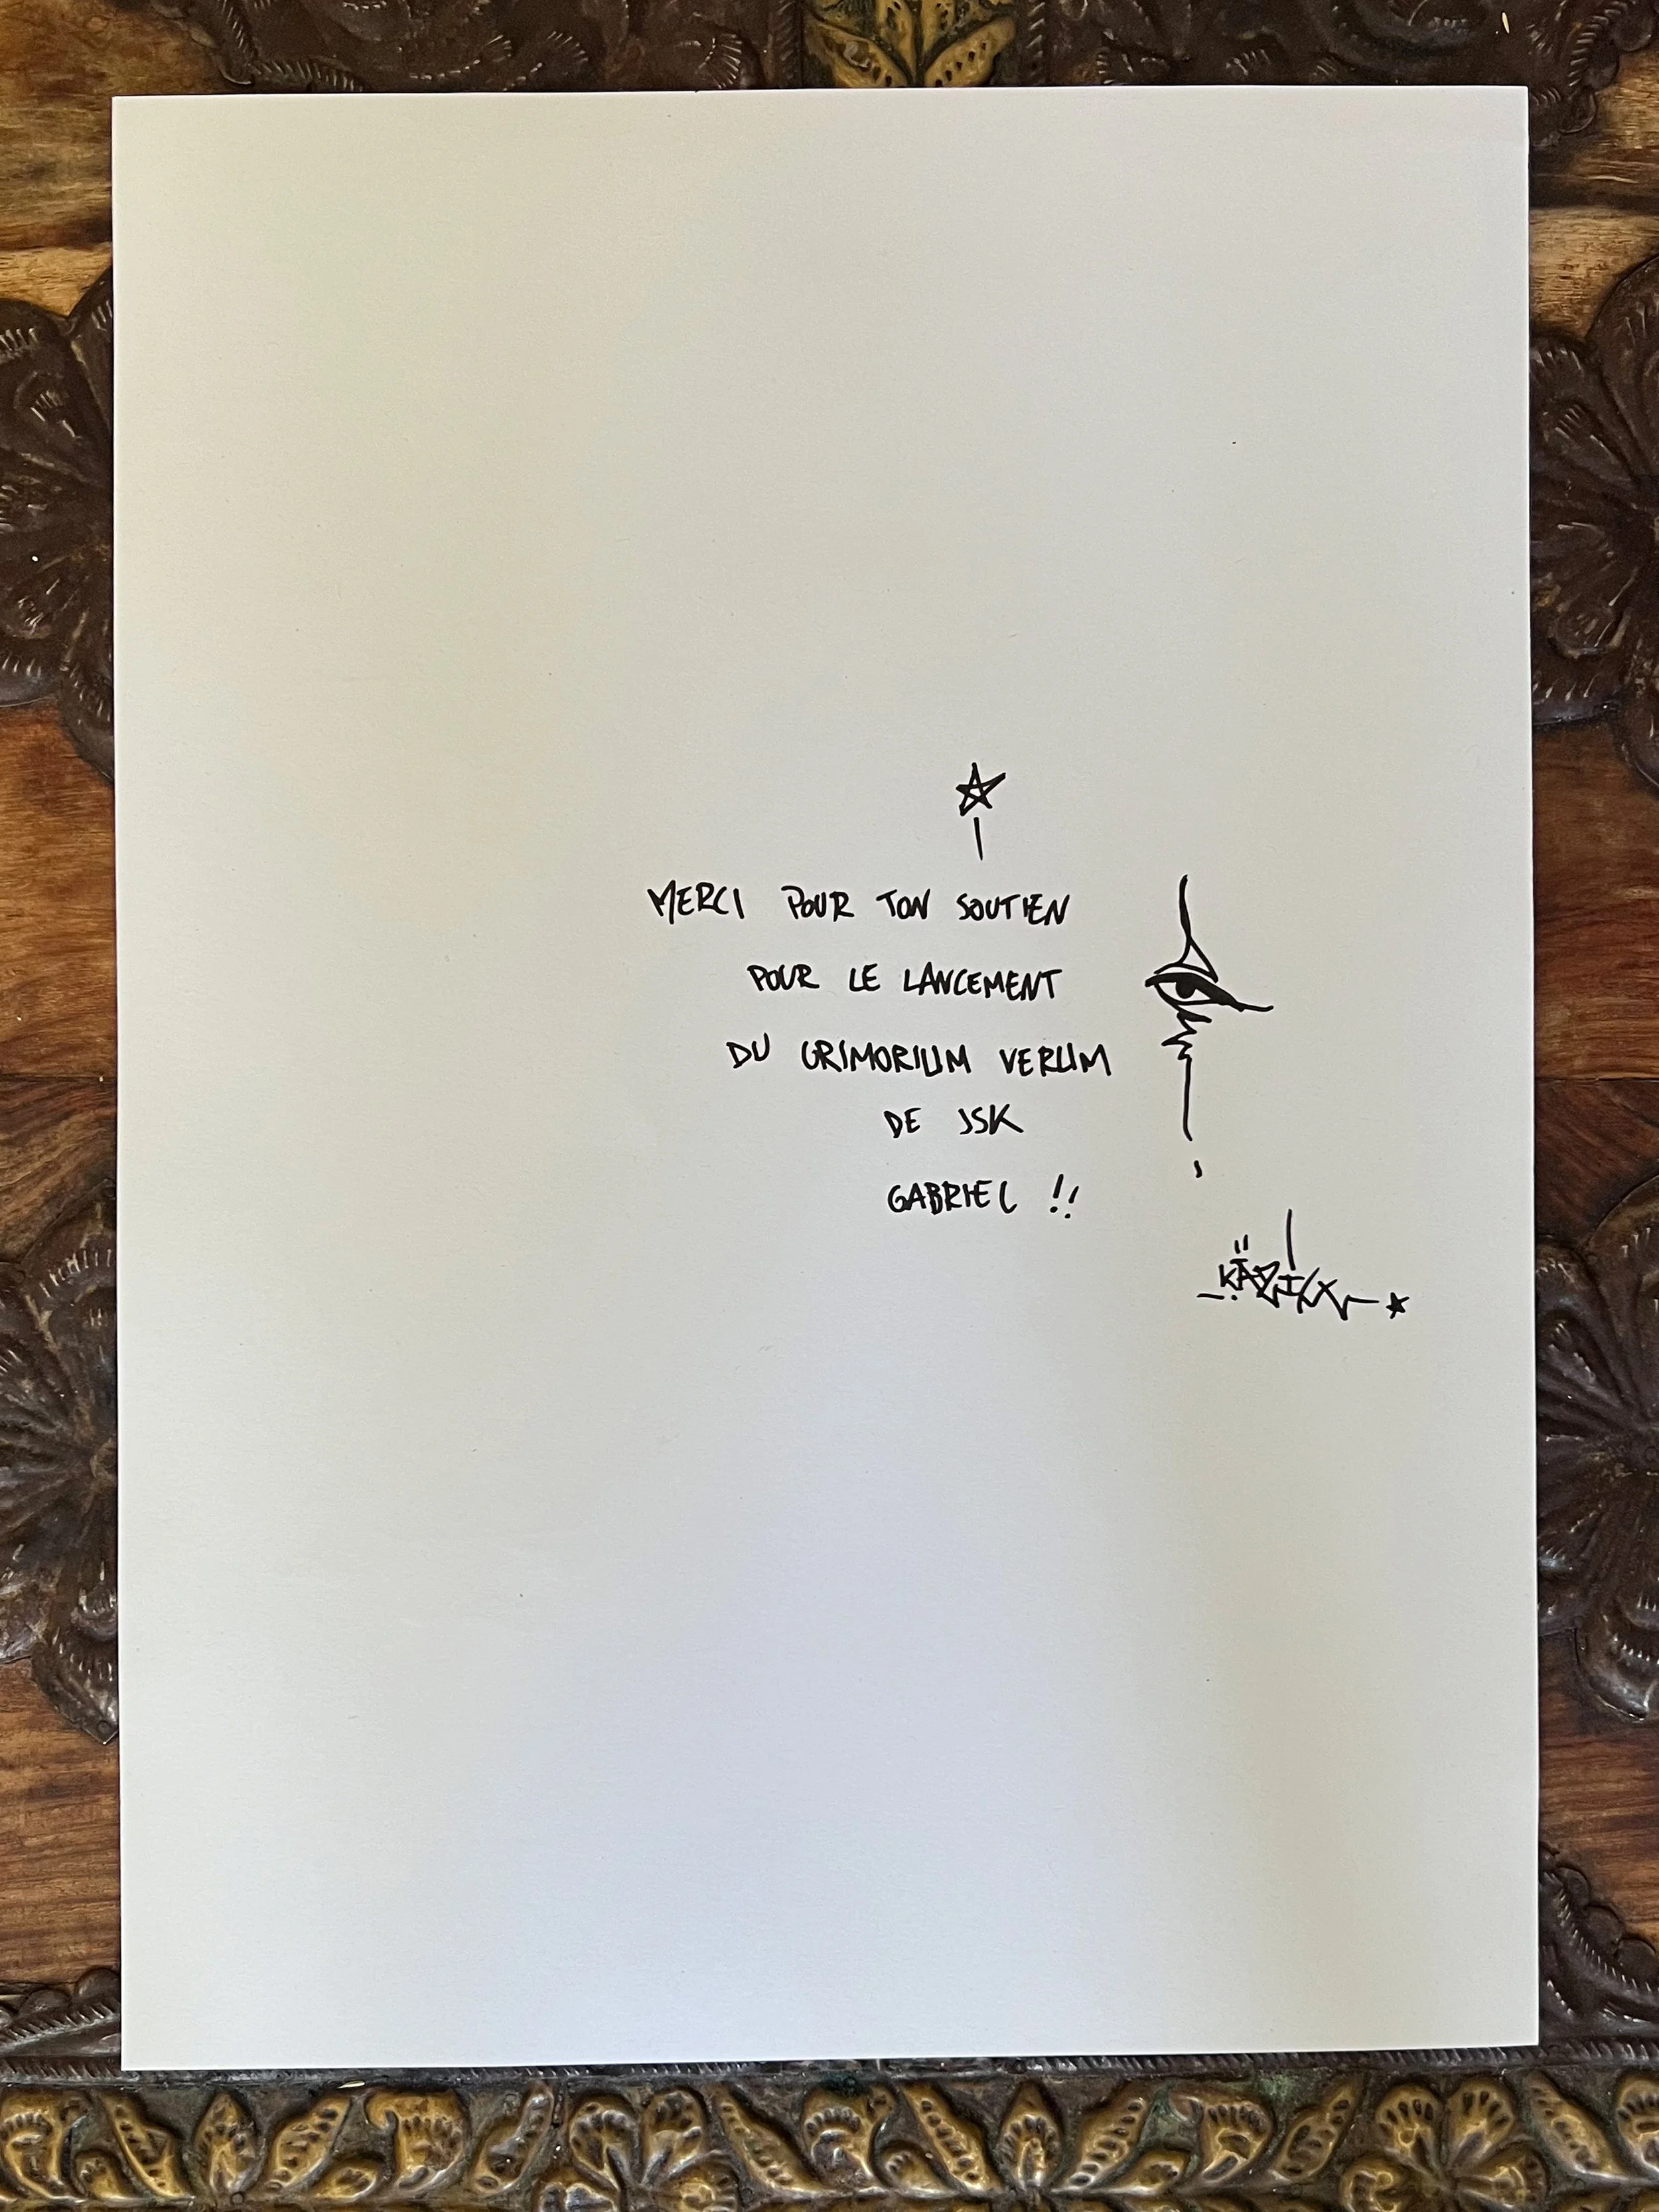 MERCI POUR TON SOUTIEN
POUR LE LANCEMENT
DU GRIMORIUM VERUM
DE JSK
GABRIEL !!